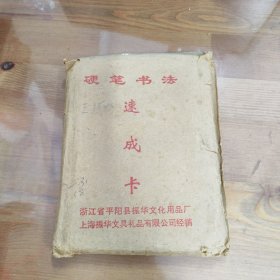 硬笔书法
速
成
卡
浙江省平阳县振华文化用品厂
上海振华文具礼品有限公司经销